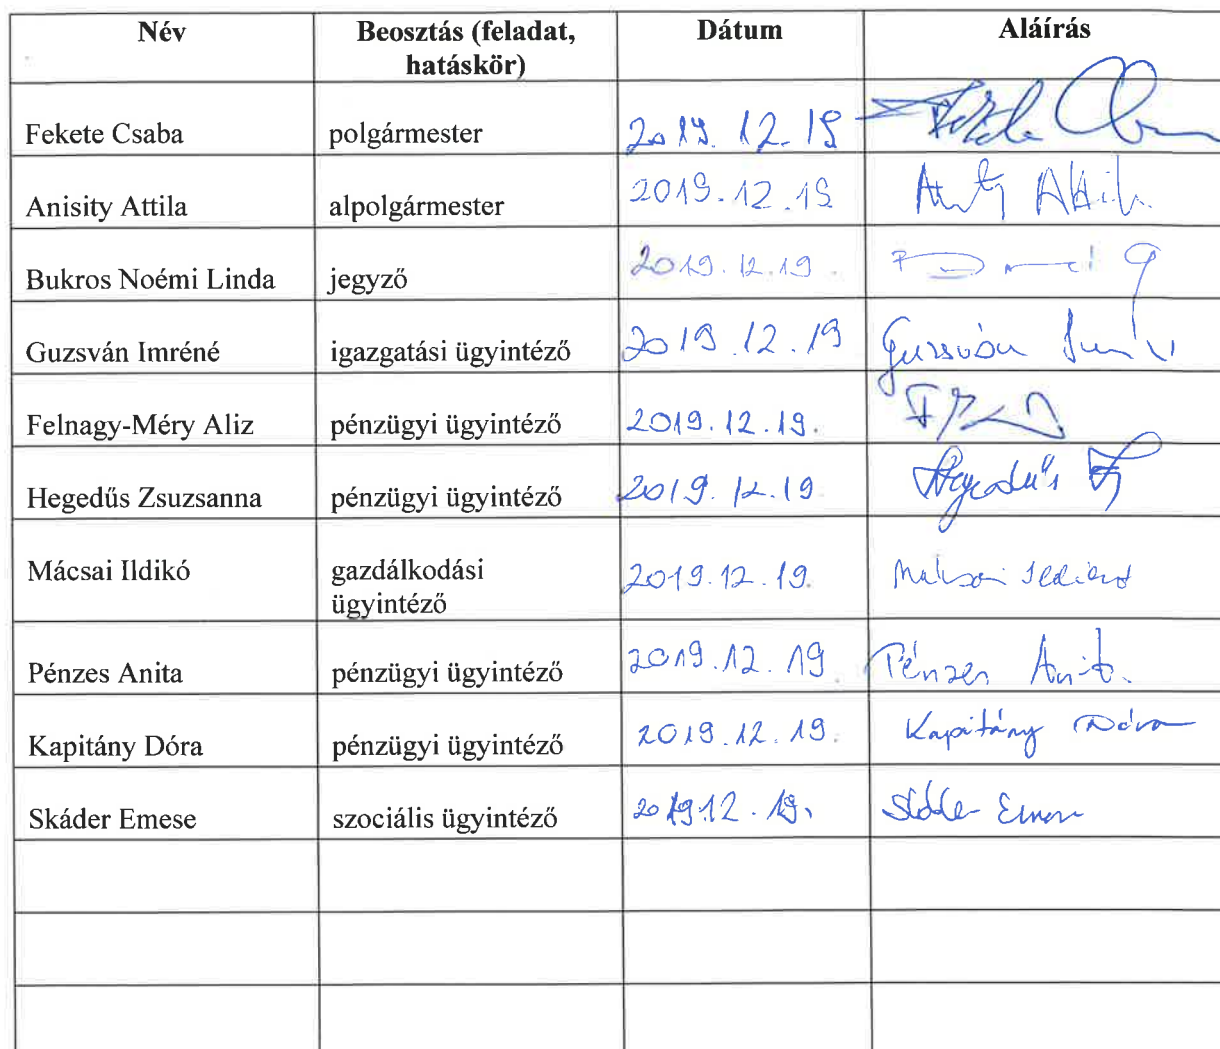 Név Beosztás (feladat, hatáskör) Dátum Aláírás
Fekete Csaba polgármester 2019.12.19
Anisity Attila alpolgármester 2019.12.19 Attila
Bukros Noémi Linda jegyző 2019.12.19.
Guzsván Imréné igazgatási ügyintéző 2019.12.19 Guzsván
Felnagy-Méry Aliz pénzügyi ügyintéző 2019.12.19.
Hegedűs Zsuzsanna pénzügyi ügyintéző 2019.12.19 Hegedűs
Mácsai Ildikó gazdálkodási ügyintéző 2019.12.19. Mácsai Ildikó
Pénzes Anita pénzügyi ügyintéző 2019.12.19. Pénzes Anita
Kapitány Dóra pénzügyi ügyintéző 2019.12.19. Kapitány Dóra
Skáder Emese szociális ügyintéző 2019.12.19. Skáder Emese